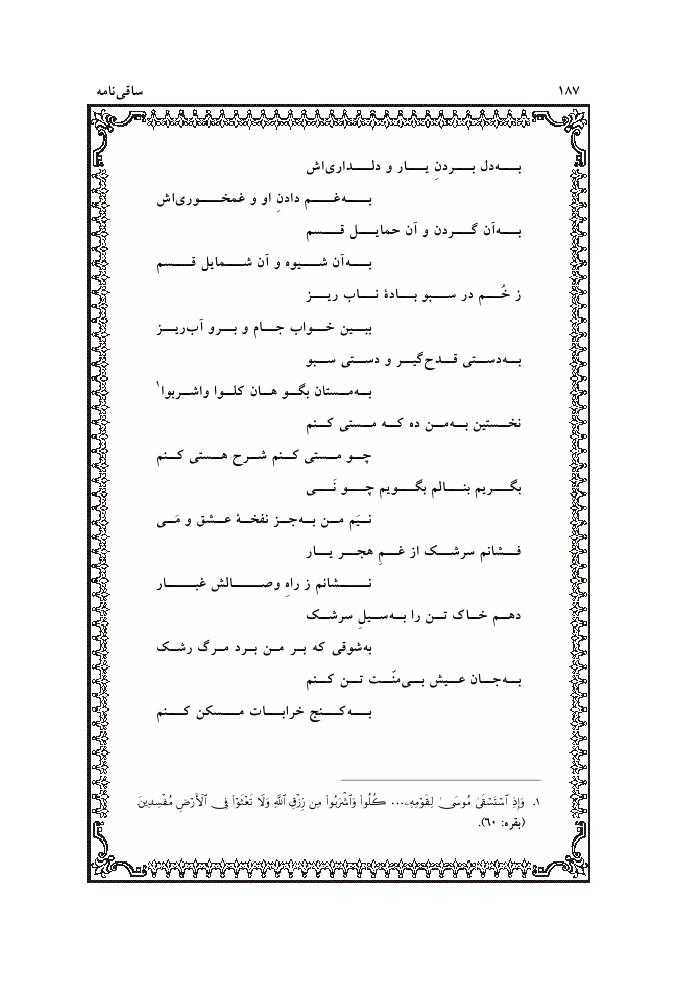 ۱۸۷ ساقی‌نامه
بـه‌دل بـردنِ یـار و دلـداری‌اش
بـه‌غـم دادنِ او و غمخـوری‌اش
بـه‌آن گـردن و آن حمایـل قـسم
بـه‌آن شـیوه و آن شـمایل قـسم
ز خُـم در سـبو بـادهٔ نـاب ریـز
ببـین خـواب جـام و بـرو آب‌ریـز
بـه‌دسـتی قـدح‌گیـر و دستی سـبو
بـه‌مـستان بگـو هـان کلـوا واشـربوا۱
نخـستین بـه‌مـن ده کـه مـستی کـنم
چـو مـستی کـنم شـرح هـستی کـنم
بگـریم بنـالم بگـویم چـو نَـی
نـیَم مـن بـه‌جـز نفخـهٔ عـشق و مَـی
فـشانم سرشـک از غـمِ هجـر یـار
نـشانم ز راهِ وصـالش غبـار
دهـم خـاک تـن را بـه‌سـیلِ سرشـک
به‌شوقی که بـر مـن بـرد مـرگ رشـک
بـه‌جـان عـیش بـی‌منّـت تـن کـنم
بـه‌کـنج خرابـات مـسکن کـنم
۱. وَإِذِ ٱسْتَسْقَىٰ مُوسَىٰ لِقَوْمِهِۦ... كُلُواْ وَٱشْرَبُواْ مِن رِزْقِ ٱللَّهِ وَلَا تَعْثَوْاْ فِى ٱلْأَرْضِ مُفْسِدِينَ
(بقره: ۶۰).